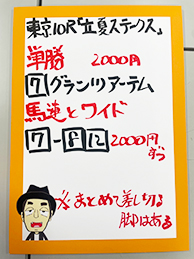 東京10R「立夏ステークス」
単勝 2000円
7グランツアーテム
馬連とワイド
7-8 12 2000円
ずつ
〆まとめて差し切る
脚はある